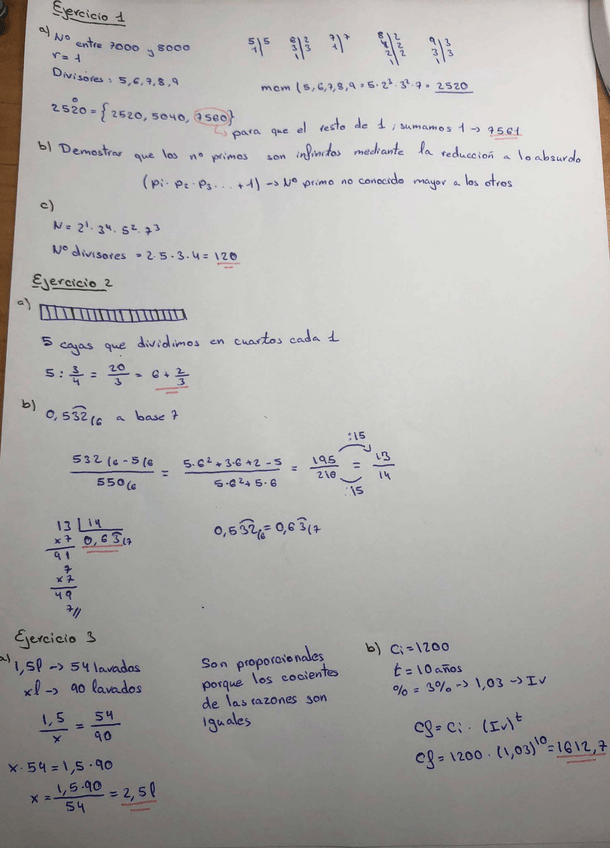 Ejercicio 1
a) Nº entre 7000 y 8000
r = 1
Divisores: 5, 6, 7, 8, 9
5|5 6|2 7|7 8|2 9|3
1| 3|3 1| 4|2 3|3
1| 2|2 1|
1|
mcm (5,6,7,8,9 = 5·2³·3²·7 = 2520
2520 = {2520, 5040, 7560}
para que el resto de 1, sumamos 1 → 7561
b) Demostrar que los nº primos son infinitos mediante la reducción a lo absurdo
(p₁· p₂· p₃... +1) → Nº primo no conocido mayor a los otros
c)
N = 2¹· 3⁴· 5²· 7³
Nº divisores = 2·5·3·4 = 120
Ejercicio 2
a)
5 cajas que dividimos en cuartos cada 1
5 : 3/4 = 20/3 = 6 + 2/3
b) 0,532(6 a base 7
532(6 - 5(6 / 550(6 = 5·6² + 3·6 + 2 - 5 / 5·6² + 5·6 = 195/210 = 13/14
:15
:15
13 |14
x7 0,63(7
91
7
x7
49
7//
0,532(6 = 0,63(7
Ejercicio 3
a) 1,5l → 54 lavados
xl → 90 lavados
1,5/x = 54/90
x·54 = 1,5·90
x = 1,5·90/54 = 2,5l
Son proporcionales
porque los cocientes
de las razones son
iguales
b) Ci = 1200
t = 10 años
% = 3% → 1,03 → Iv
Cf = Ci · (Iv)ᵗ
Cf = 1200 · (1,03)¹⁰ = 1612,7